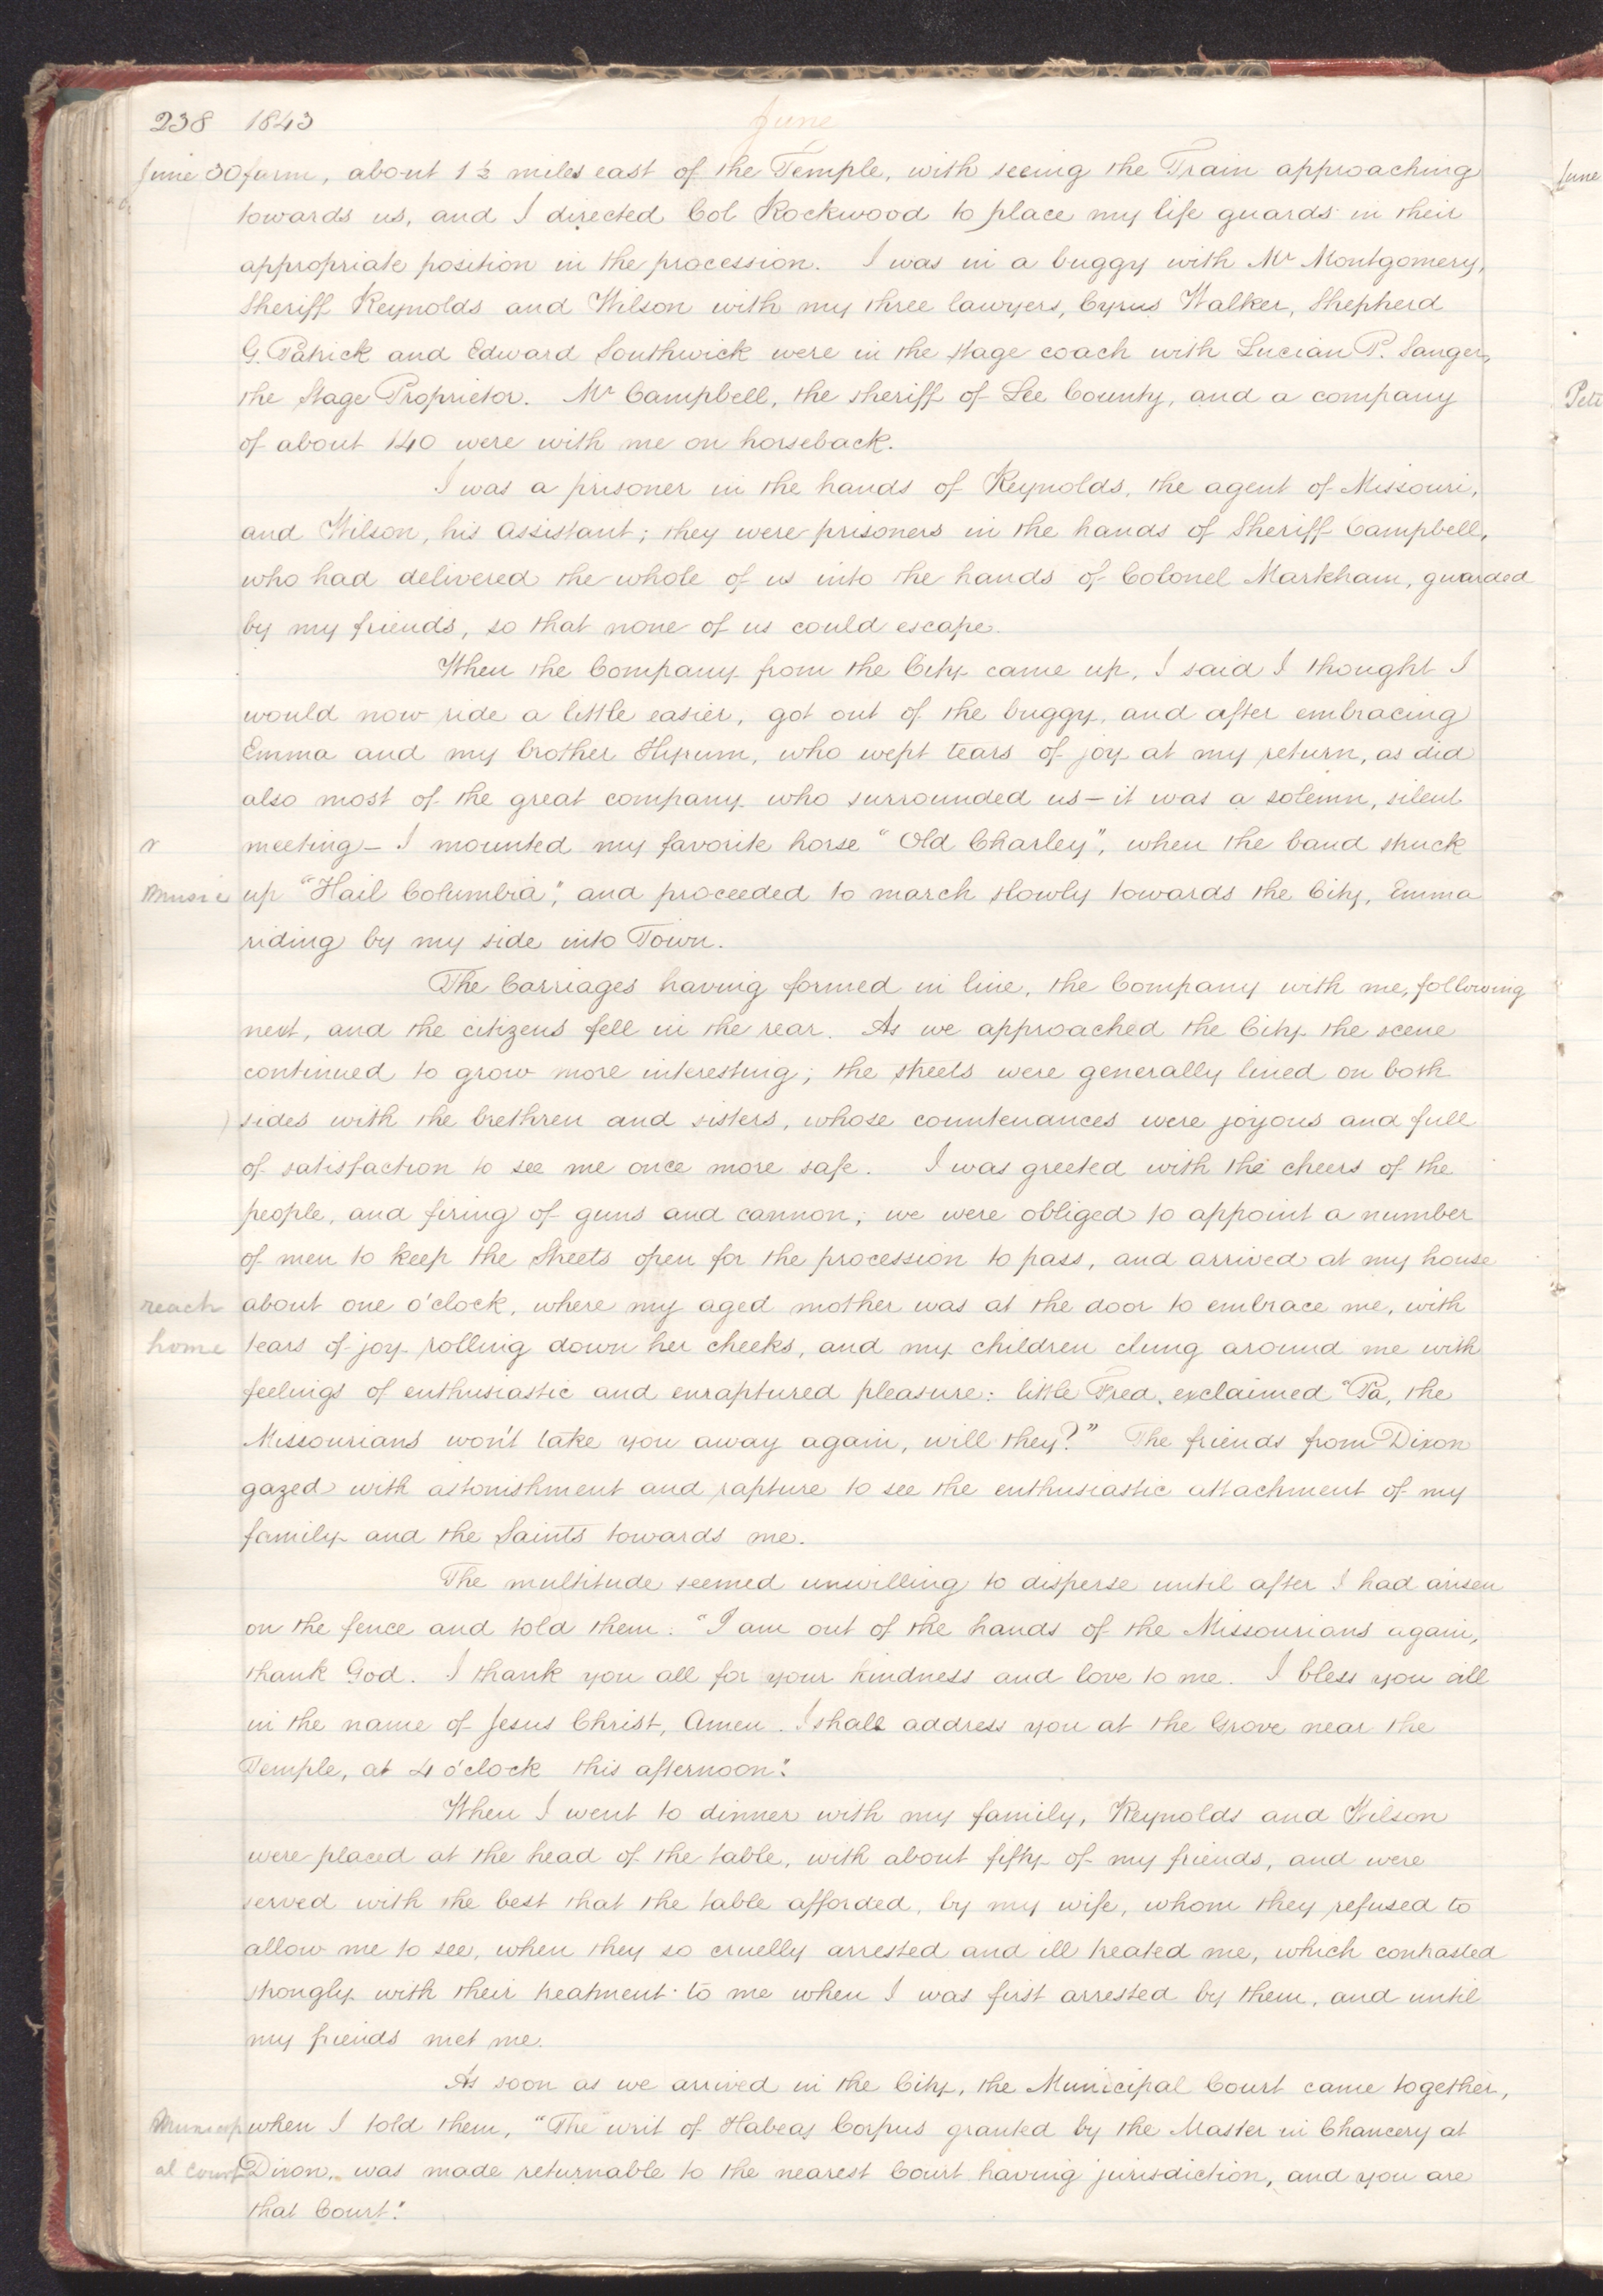 238 1843 June
June 30 farm, about 1½ miles east of the Temple, with seeing the Train approaching
towards us, and I directed Col Rockwood to place my life guards in their
appropriate position in the procession. I was in a buggy with Mr Montgomery,
Sheriff Reynolds and Wilson with my three lawyers, Cyrus Walker, Shepherd
G. Patrick and Edward Southwick were in the stage coach with Lucian P. Sanger,
the Stage Proprietor. Mr Campbell, the sheriff of Lee County, and a company
of about 140 were with me on horseback.
I was a prisoner in the hands of Reynolds, the agent of Missouri,
and Wilson, his assistant; they were prisoners in the hands of Sheriff Campbell,
who had delivered the whole of us into the hands of Colonel Markham, guarded
by my friends, so that none of us could escape.
When the Company from the City came up, I said I thought I
would now ride a little easier, got out of the buggy, and after embracing
Emma and my brother Hyrum, who wept tears of joy at my return, as did
also most of the great company who surrounded us — it was a solemn, silent
meeting — I mounted my favorite horse "Old Charley", when the band struck
music up "Hail Columbia", and proceeded to march slowly towards the City, Emma
riding by my side into Town.
The Carriages having formed in line, the Company with me, following
next, and the citizens fell in the rear. As we approached the City the scene
continued to grow more interesting; the streets were generally lined on both
sides with the brethren and sisters, whose countenances were joyous and full
of satisfaction to see me once more safe. I was greeted with the cheers of the
people, and firing of guns and cannon; we were obliged to appoint a number
of men to keep the Streets open for the procession to pass, and arrived at my house
reach about one o'clock, where my aged mother was at the door to embrace me, with
home tears of joy rolling down her cheeks, and my children clung around me with
feelings of enthusiastic and enraptured pleasure: little Fred, exclaimed "Pa, the
Missourians won't take you away again, will they?" The friends from Dixon
gazed with astonishment and rapture to see the enthusiastic attachment of my
family and the Saints towards me.
The multitude seemed unwilling to disperse until after I had arisen
on the fence and told them. "I am out of the hands of the Missourians again,
thank God. I thank you all for your kindness and love to me. I bless you all
in the name of Jesus Christ, Amen. I shall address you at the Grove near the
Temple, at 4 o'clock this afternoon."
When I went to dinner with my family, Reynolds and Wilson
were placed at the head of the table, with about fifty of my friends, and were
served with the best that the table afforded, by my wife, whom they refused to
allow me to see, when they so cruelly arrested and ill treated me, which contrasted
strongly with their treatment to me when I was first arrested by them, and until
my friends met me.
As soon as we arrived in the City, the Municipal Court came together,
Municip when I told them, "The writ of Habeas Corpus granted by the Master in Chancery at
al court Dixon, was made returnable to the nearest Court having jurisdiction, and you are
that Court."
June